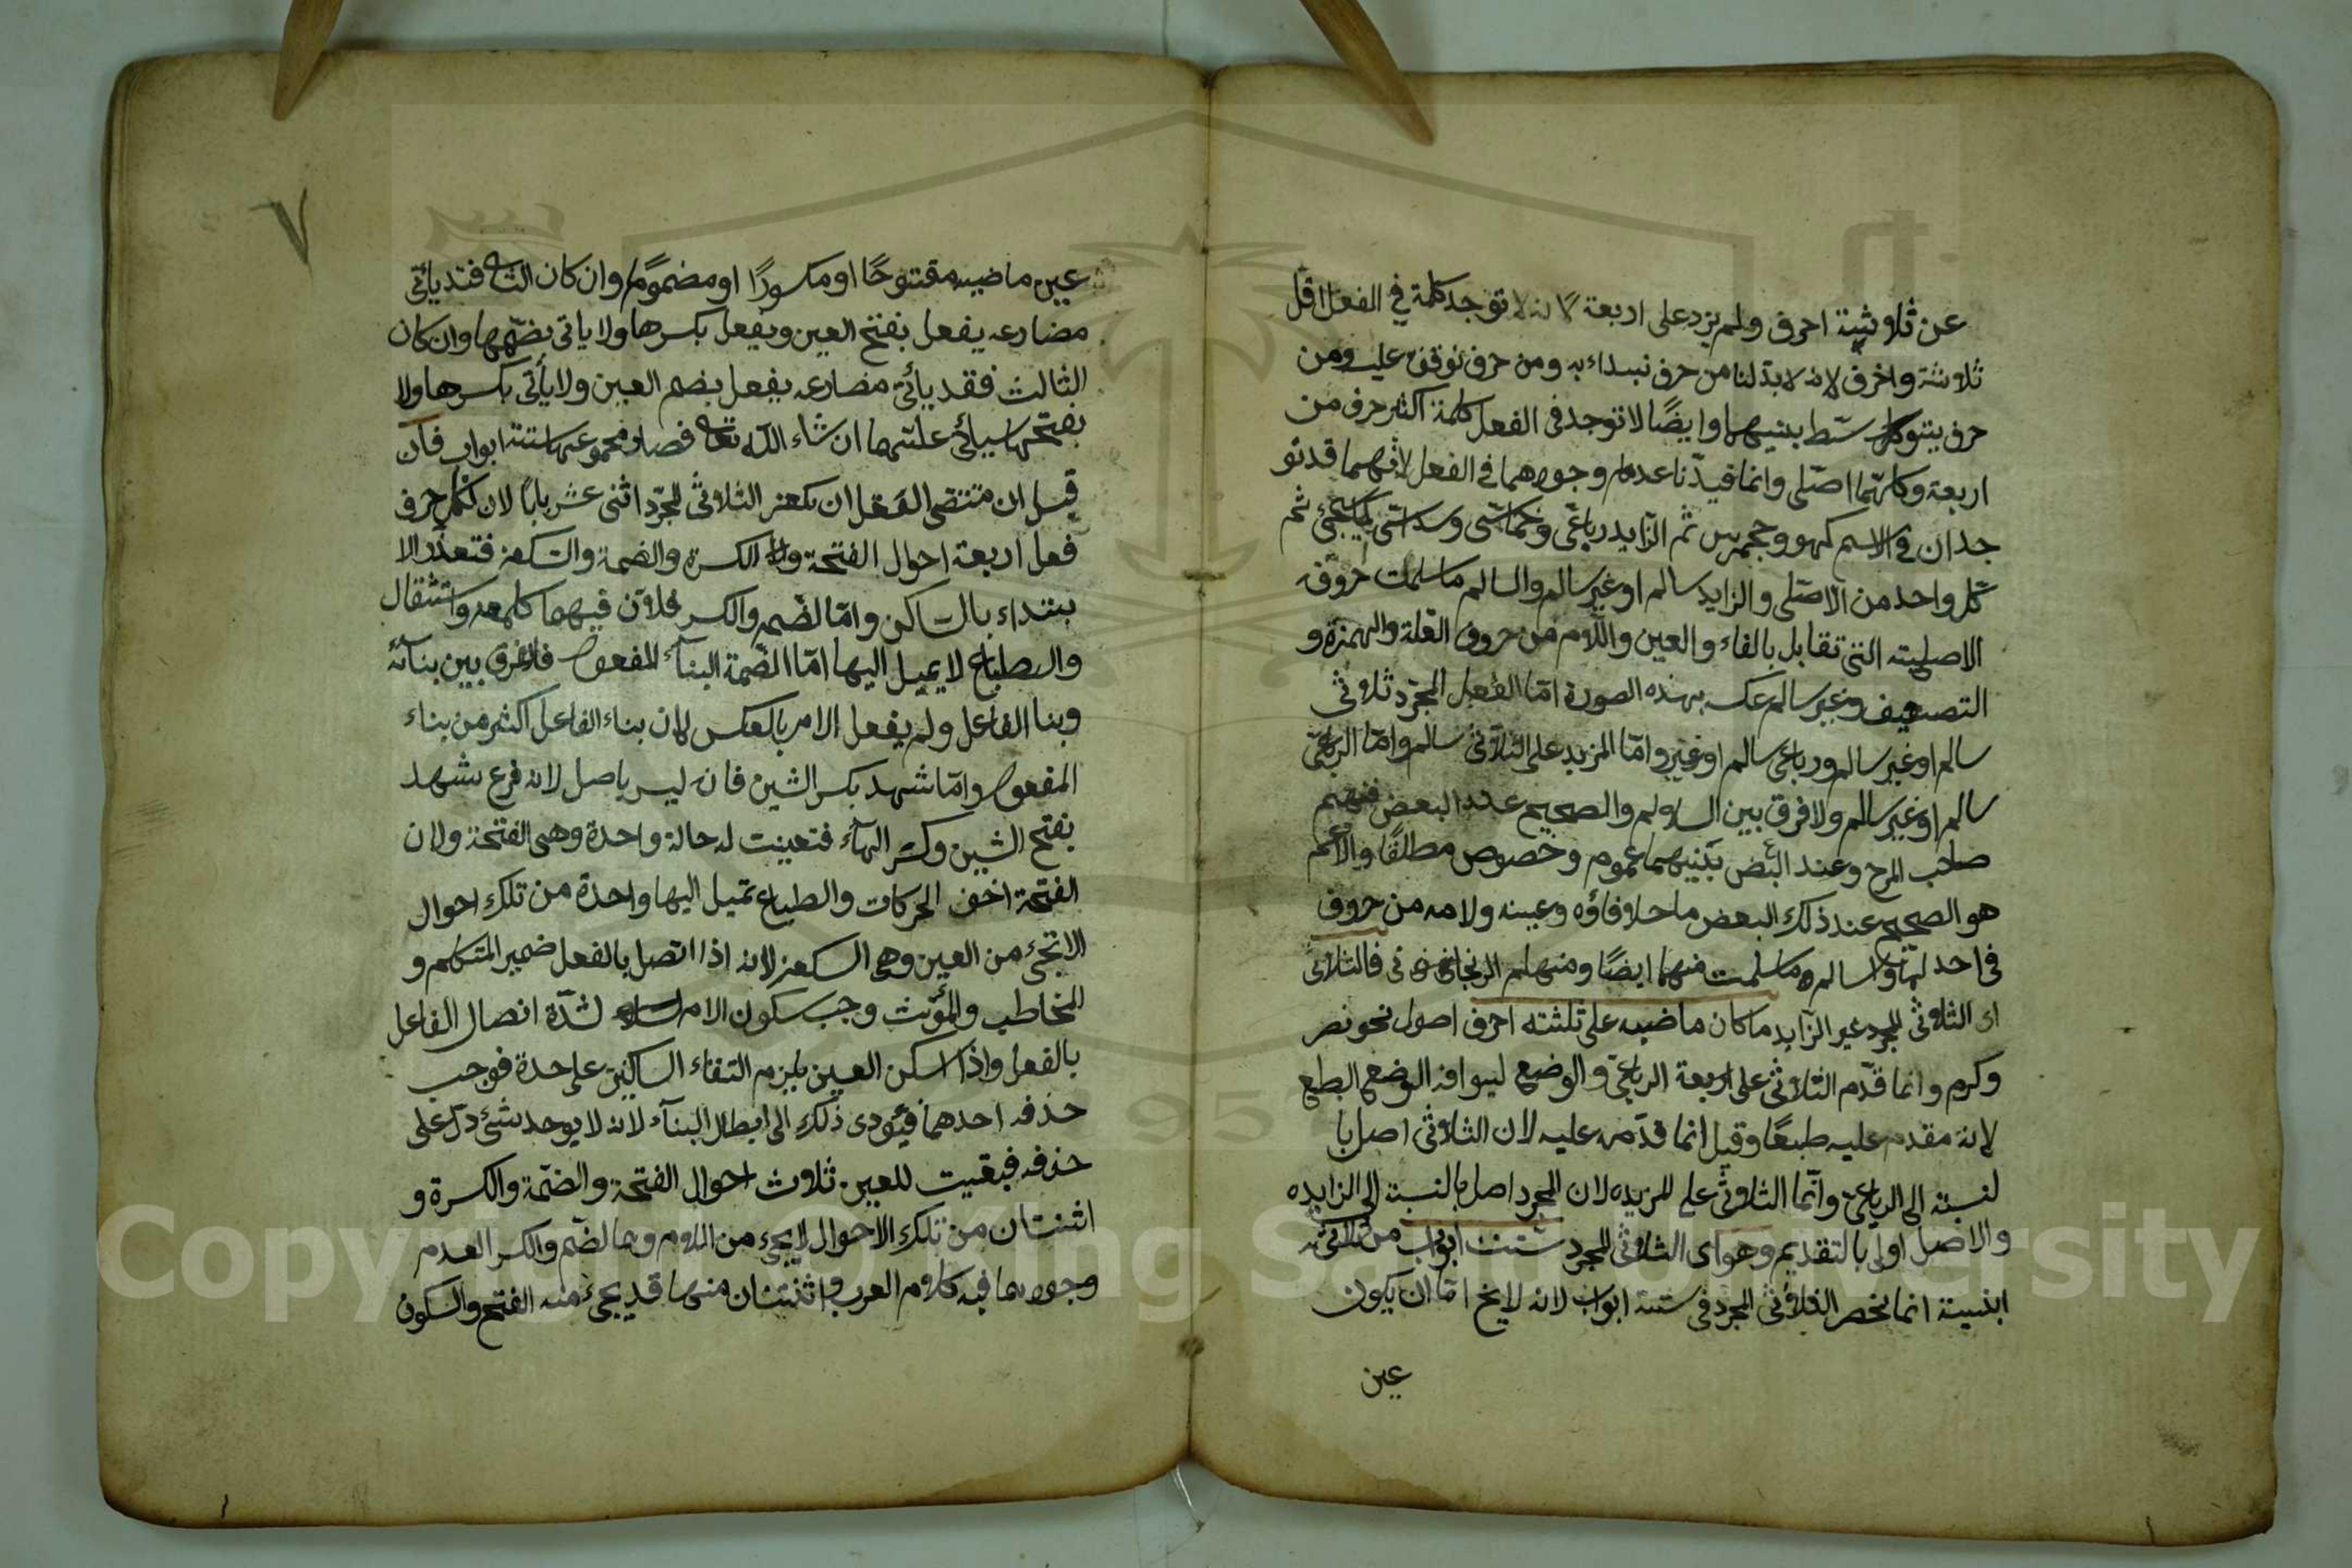 عن ثلاثة احرف ولم يزد على اربعة لانه لا توجد كلمة في الفعل اقل
ثلاثة واحرف لانه لا بد لنا من حرف نبتداء به ومن حرف نوقف عليه ومن
حرف يتوسط بينهما وايضًا لا توجد فى الفعل كلمة اكثر حرف من
اربعة وكلتهما اصلى وانما قيدنا عدم وجودهما فى الفعل لانهما قد تو
جدان فى الاسم كهو وجحمرش ثم الزايد رباعى وخماسى وسداسى كما سيجئ ثم
كل واحد من الاصلى والزايد سالم او غير سالم والسالم ما سلمت حروفه
الاصلية التى تقابل بالفاء والعين واللام من حروف العلة والهمزة و
التضعيف وغير سالم عكسه بهذه الصورة امّا الفعل المجرّد ثلاثى
سالم او غير سالم ورباعى سالم او غير وامّا المزيد على الثلاثى سالم وامّا الرباعى
سالم او غير سالم ولا فرق بين السالم والصحيح عند البعض فمنهم
صاحب المرح وعند البعض بينهما عموم وخصوص مطلقًا والاعم
هو الصحيح عند ذلك البعض ما خلا فاؤه وعينه ولامه من حروف
فى احد والسالم ما سلمت منهما ايضًا ومنهم الزنجانى فالثلاثى
اى الثلاثى المجرد غير الزايد ما كان ماضيه على ثلثته احرف اصول نحو نصر
وكرم وانما قدّم الثلاثى على اربعة الرباعى والوضع ليوافه الوضع الطبع
لانه مقدم عليه طبعًا وقيل انما قدّمه عليه لان الثلاثى اصل با
لنسبته الى الرباعى وانّما الثلاثى على المزيده لان المجرد اصل بالنسبة الى الزايده
والاصل اولى بالتقديم وهو اى الثلاثى المجرد ستت ابواب من ثلاثة
ابنيية انما نخصر الثلاثى المجرد فى ستة ابواب لانه لا يخ امّا ان يكون
عين
٧
عين ماضيه مفتوحًا او مكسورًا او مضمومًا وان كان الثا فقد يأتى
مضارعه يفعل بفتح العين ويفعل بكسرها ولا ياتى بضمها وان كان
الثالث فقد يأتى مضارعه يفعل بضم العين ولا يأتى بكسرها ولا
بفتحها سيأتى علتهما ان شاء الله تعا فصار مجموعها ستة ابواب فان
قيل ان مقتضى العقل ان يكون الثلاثى المجرّد اثنى عشر بابًا لان لكل حرف
فعل اربعة احوال الفتحة والكسرة والضمة والسكون فتعذر الا
بتداء بالساكن وامّا الضم والكسر فلان فيهما كلمه واستثقال
والطباع لا يميل اليها امّا الضمة البناء المفعول فالفرق بين بنائه
وبنا الفاعل ولم يفعل الامر بالعكس لان بناء الفاعل اكثر من بناء
المفعول وامّا شهد بكسر الشين فانه ليس باصل لانه فرع شهد
بفتح الشين وكسر الهاء فتعينت له حالة واحدة وهى الفتحة ولان
الفتحة اخف الحركات والطباع تميل اليها واحدة من تلك احوال
الا تجئ من العين وهى السكون لانه اذا اتصل بالفعل ضمير المتكلم و
المخاطب والمؤنث وجب سكون الام لشدّة اتصال الفاعل
بالفعل واذا اسكن العين يلزم التقاء الساكنين على حدة فوجب
حذفه احدهما فيؤدى ذلك الى ابطال البناء لانه لا يوجد شئ دل على
حذفه فبقيت للعين ثلاث احوال الفتحة والضمّة والكسرة و
اثنتان من تلك الاحوال لا يجئ من اللام وهما لضم والكسر العدم
وجودهما فيه كلام العرب واثنتان منها قد يجئ منه الفتح والسكون
Copyright © King Saud University